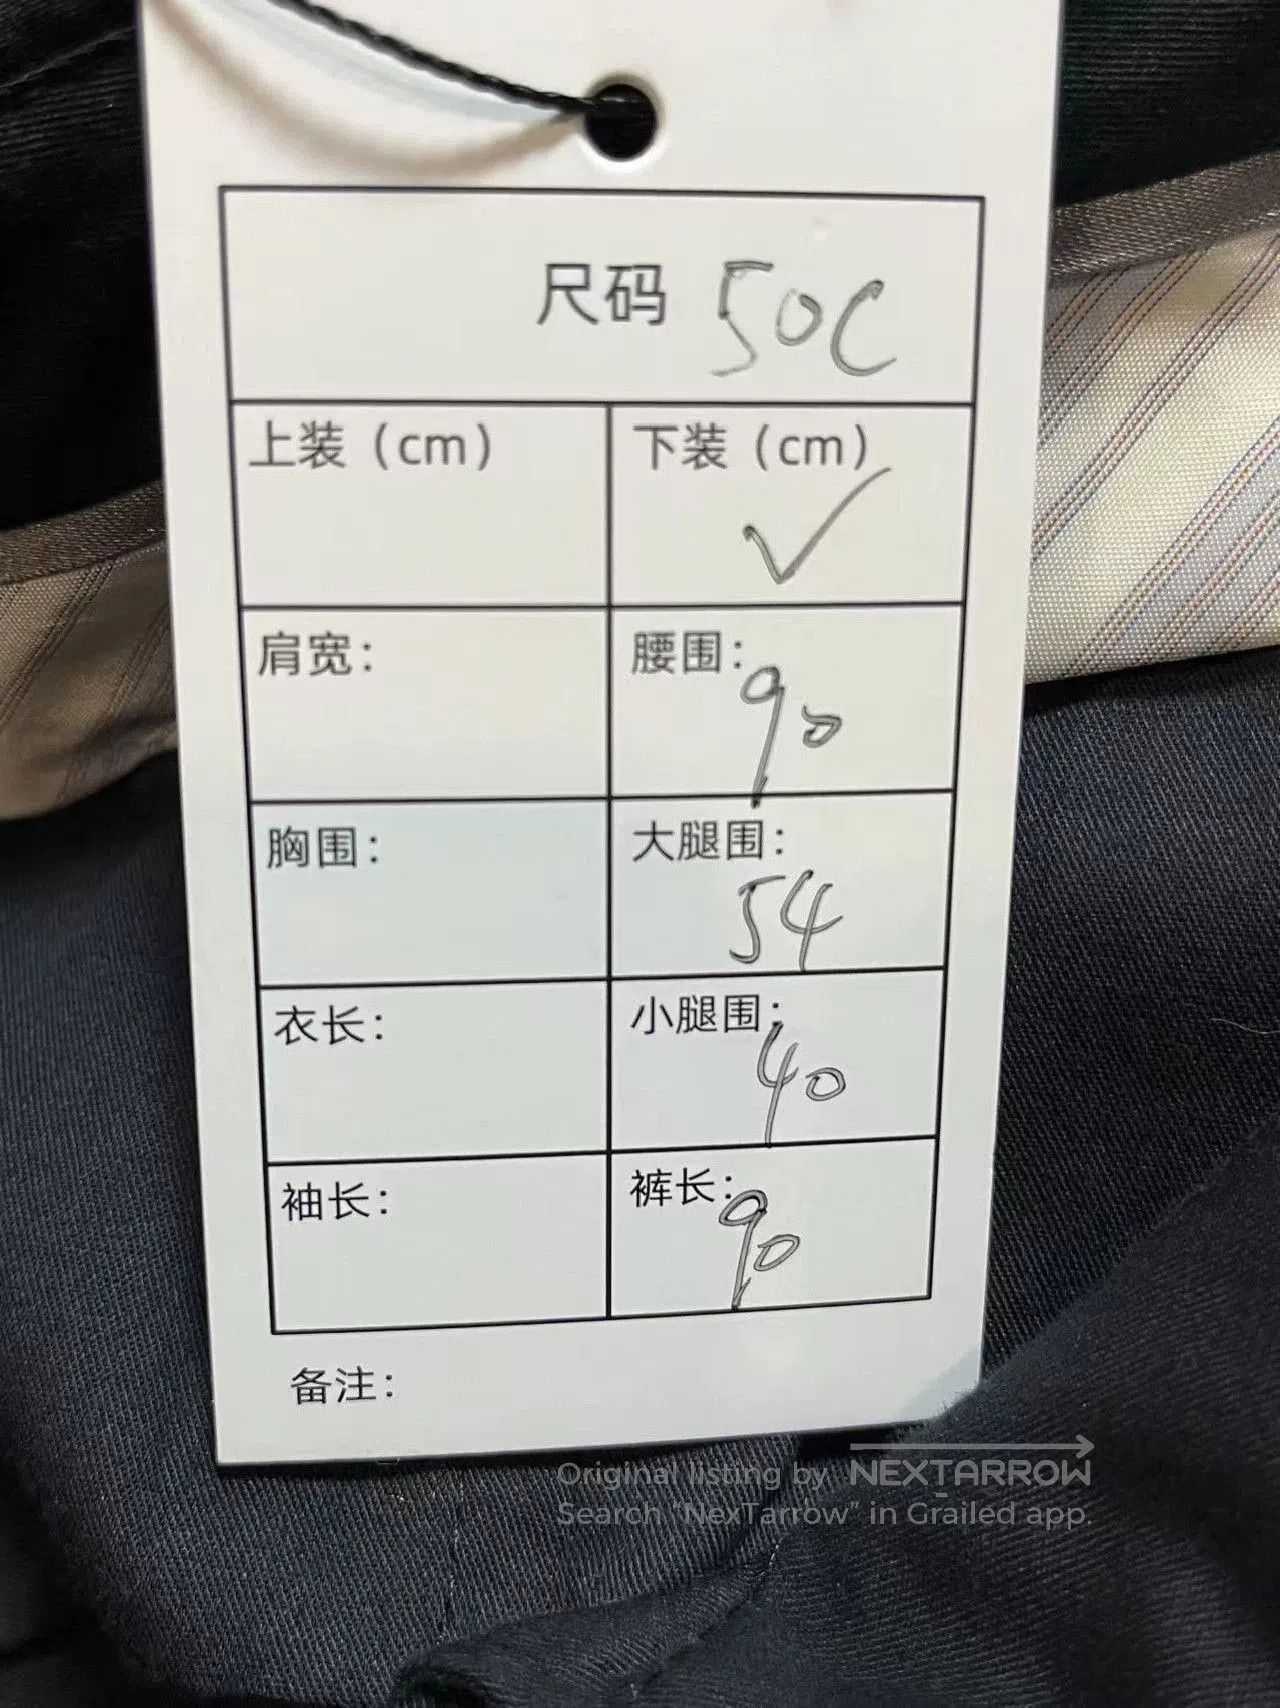 尺码 50C
上装（cm） 下装（cm）
✓
肩宽： 腰围：90
胸围： 大腿围：54
衣长： 小腿围：40
袖长： 裤长：90
备注：
Original listing by NEXTARROW
Search “NexTarrow” in Grailed app.